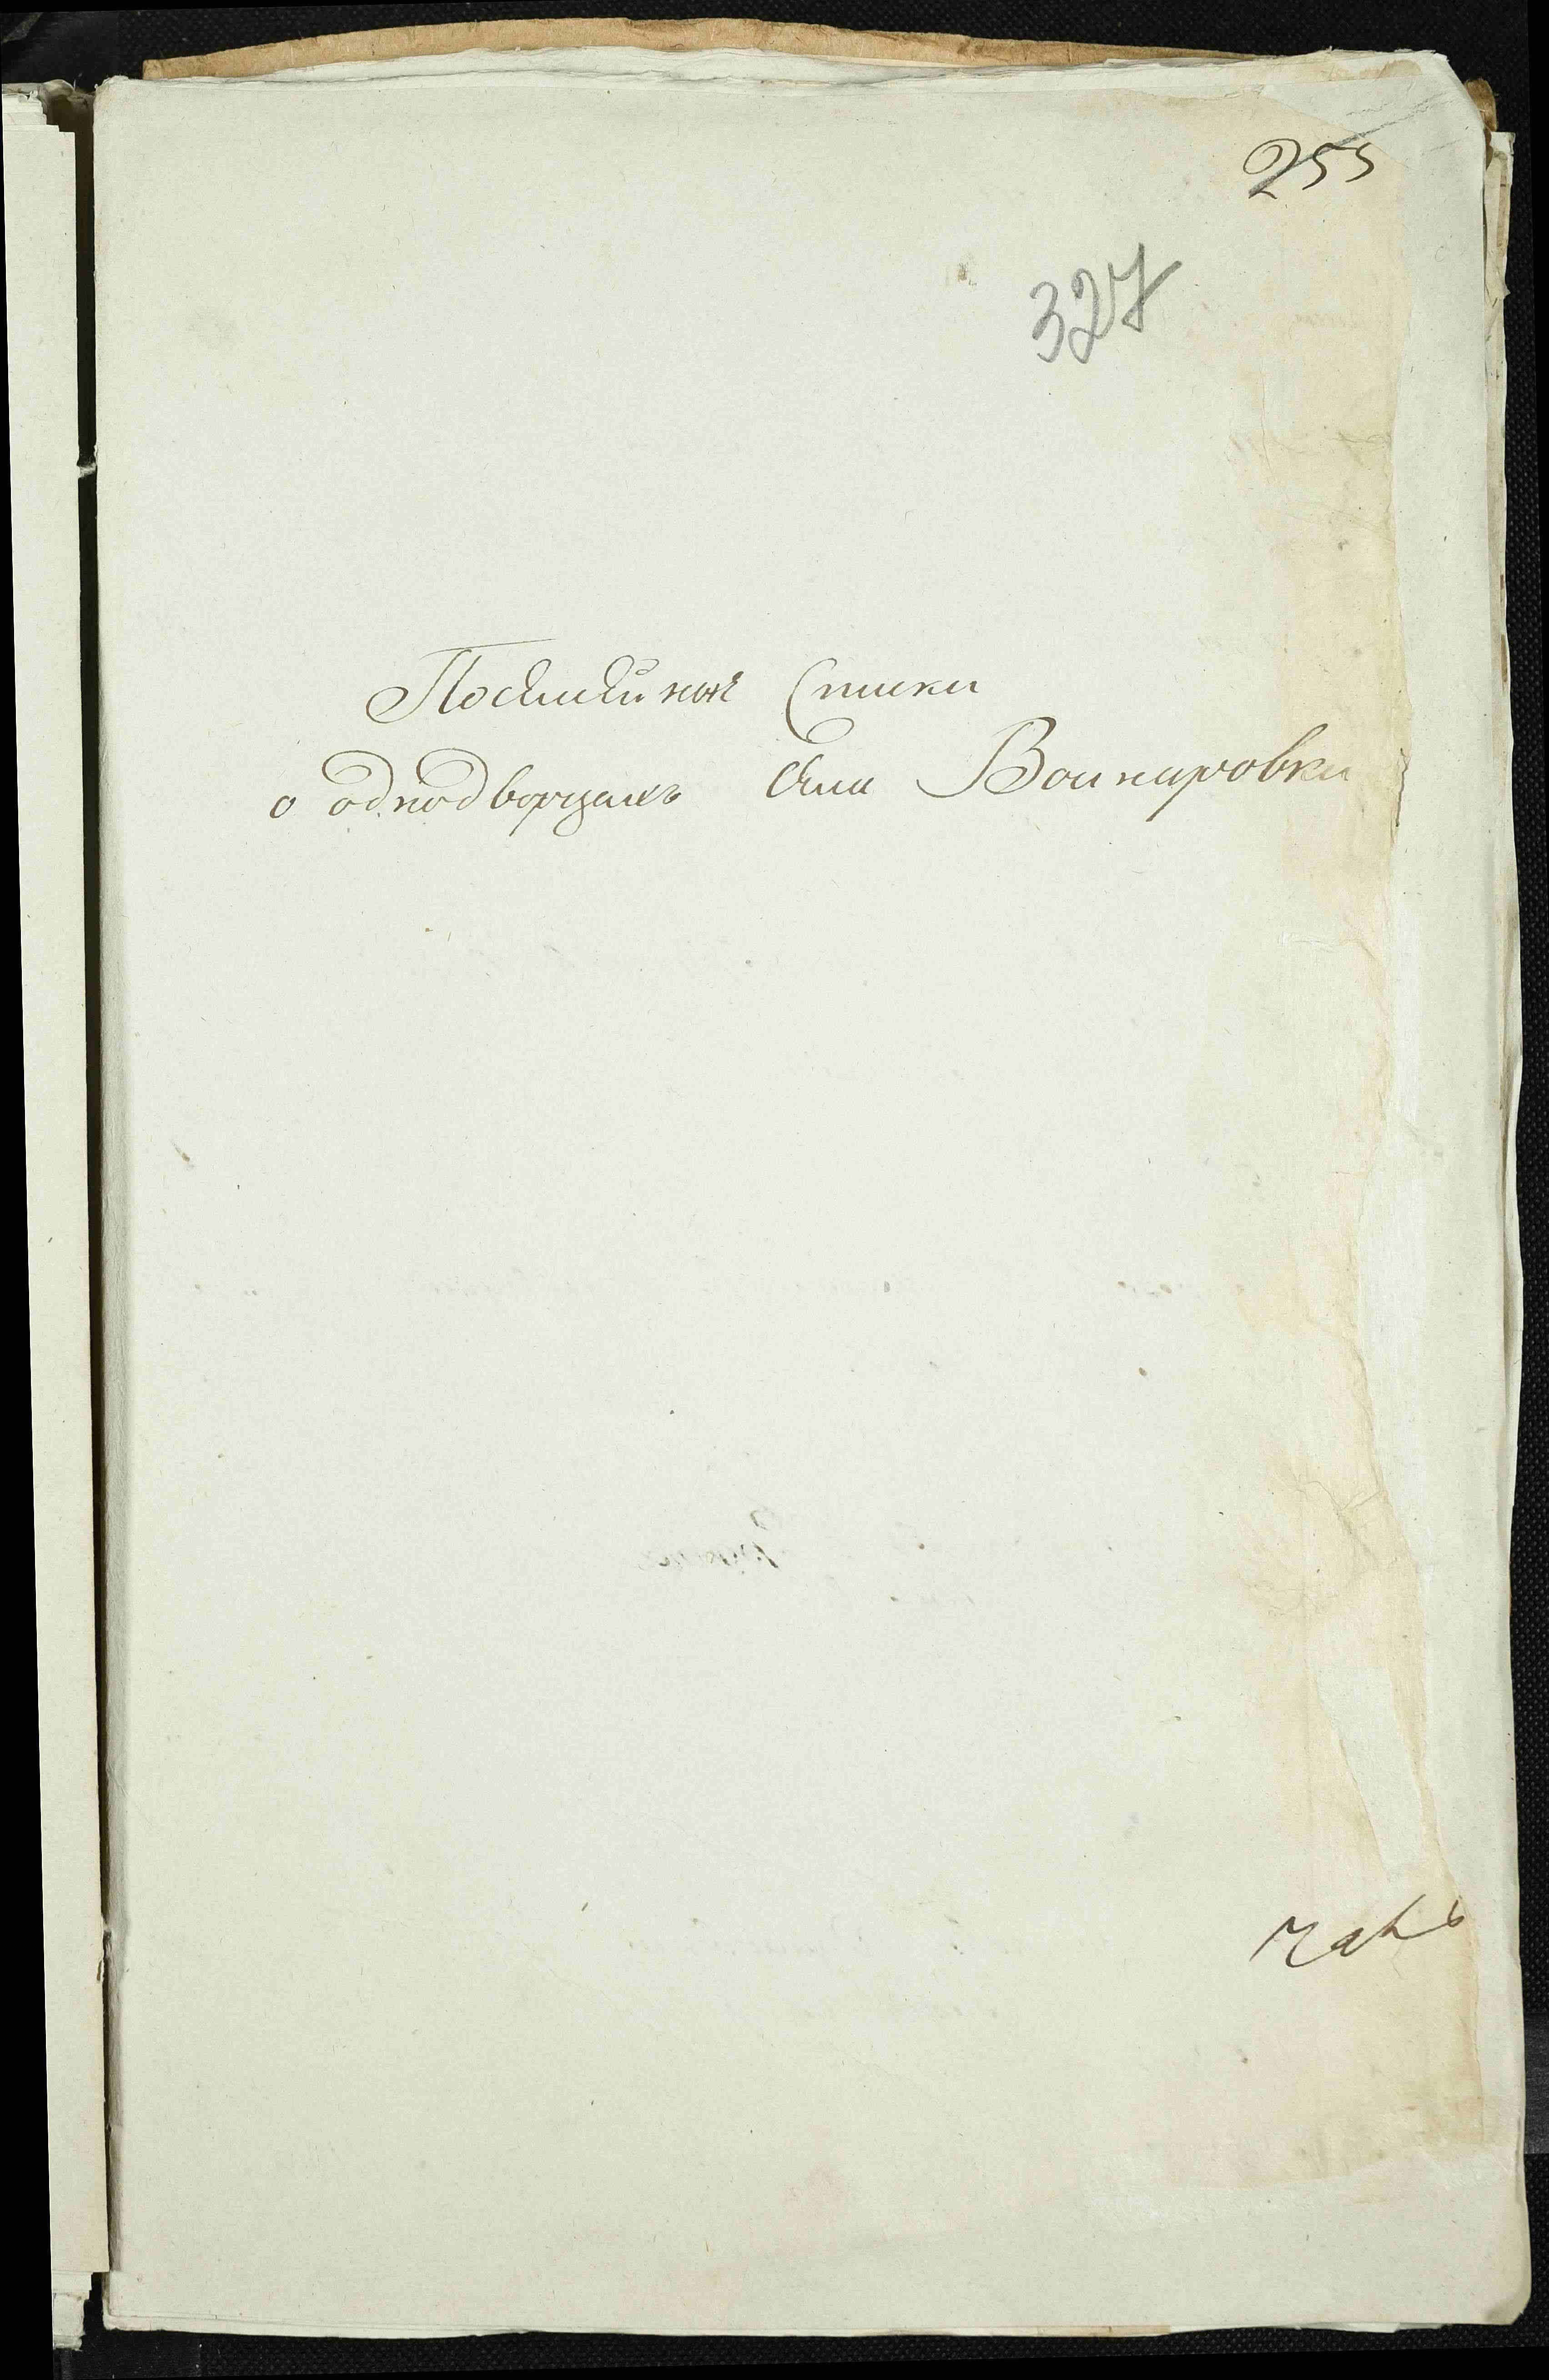 255
327
Посемейной Списки
о однодворцахъ Села Воинаровки